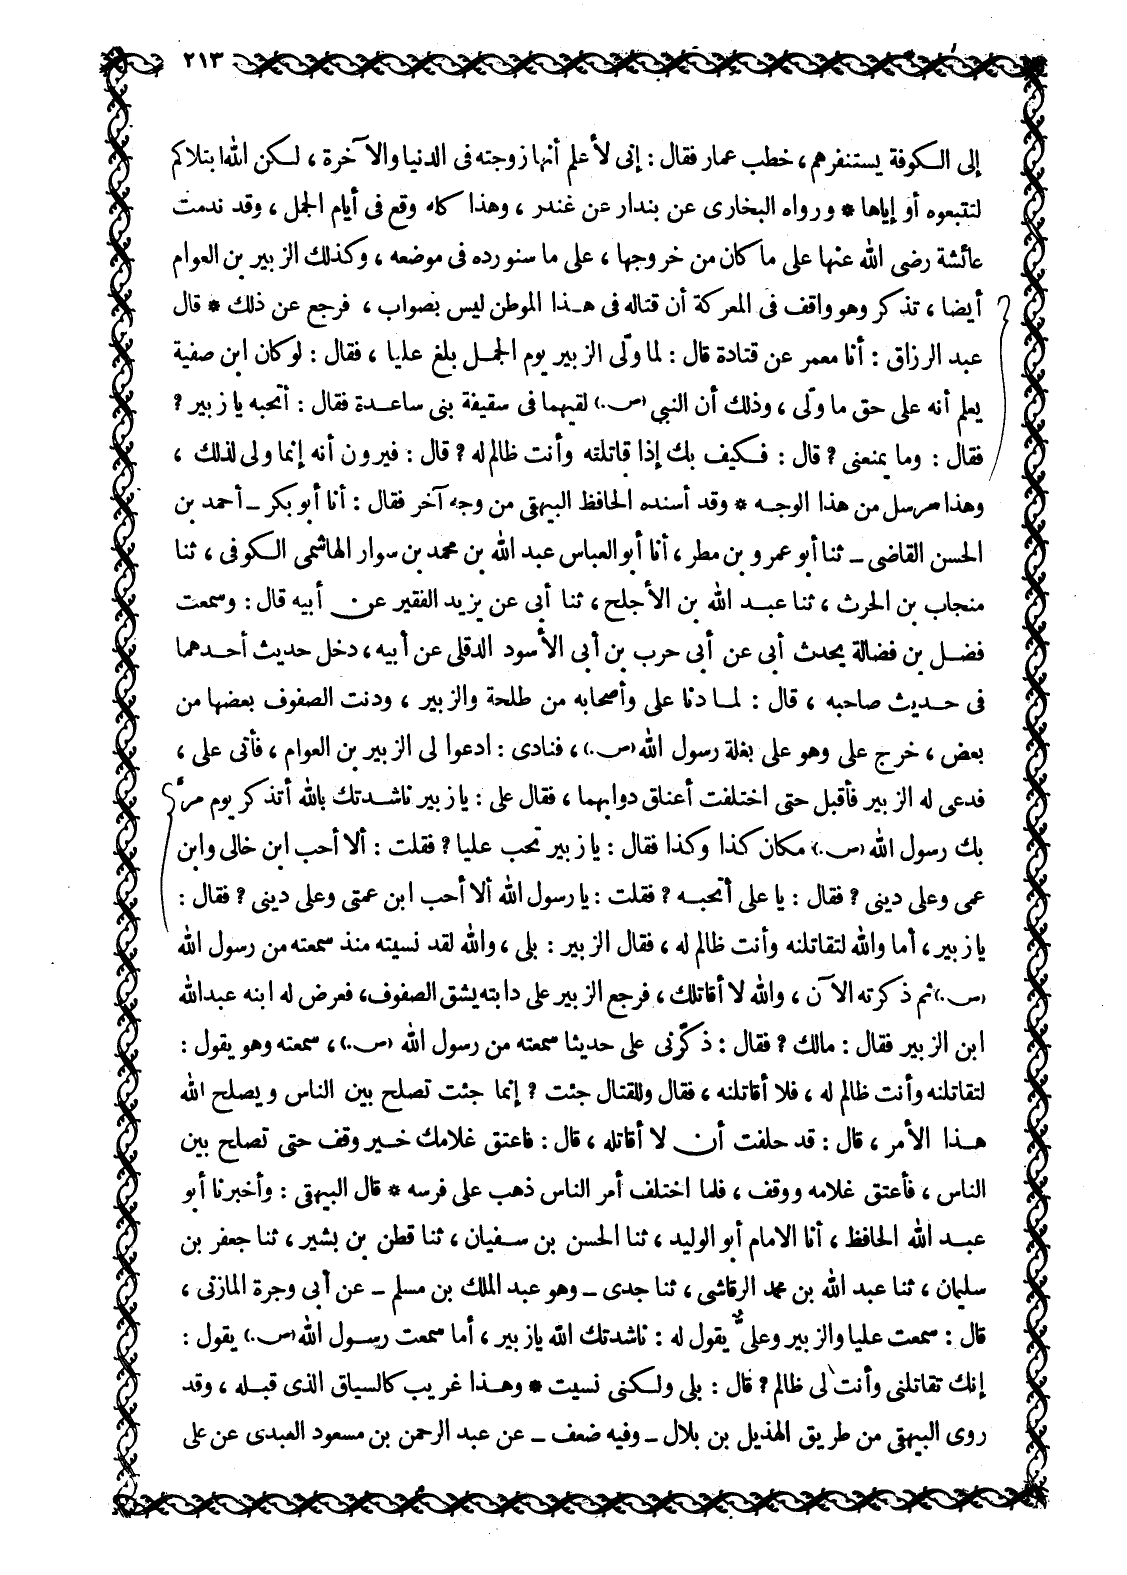 ٢١٣
إلى الكوفة يستنفرهم، خطب عمار فقال: إنى لأعلم أنها زوجته فى الدنيا والآخرة، لكن الله ابتلاكم
لتتبعوه أو إياها * ورواه البخارى عن بندار عن غندر، وهذا كله وقع فى أيام الجمل، وقد ندمت
عائشة رضى الله عنها على ما كان من خروجها، على ما سنورده فى موضعه، وكذلك الزبير بن العوام
أيضا، تذكر وهو واقف فى المعركة أن قتاله فى هذا الموطن ليس بصواب، فرجع عن ذلك * قال
عبد الرزاق: أنا معمر عن قتادة قال: لما ولّى الزبير يوم الجمل بلغ عليا، فقال: لو كان ابن صفية
يعلم أنه على حق ما ولّى، وذلك أن النبي (ص.) لقيهما فى سقيفة بنى ساعدة فقال: أتحبه يا زبير؟
فقال: وما يمنعنى؟ قال: فكيف بك إذا قاتلته وأنت ظالم له؟ قال: فيرون أنه إنما ولى لذلك،
وهذا مرسل من هذا الوجه * وقد أسنده الحافظ البيهقى من وجه آخر فقال: أنا أبو بكر ــ أحمد بن
الحسن القاضى ــ ثنا أبو عمرو بن مطر، أنا أبو العباس عبد الله بن محمد بن سوار الهاشمى الكوفى، ثنا
منجاب بن الحرث، ثنا عبد الله بن الأجلح، ثنا أبى عن يزيد الفقير عن أبيه قال: وسمعت
فضل بن فضالة يحدث أبى عن أبى حرب بن أبى الأسود الدقلى عن أبيه، دخل حديث أحدهما
فى حديث صاحبه، قال: لما دنا على وأصحابه من طلحة والزبير، ودنت الصفوف بعضها من
بعض، خرج على وهو على بغلة رسول الله (ص.)، فنادى: ادعوا لى الزبير بن العوام، فأتى على،
فدعى له الزبير فأقبل حتى اختلفت أعناق دوابهما، فقال على: يا زبير ناشدتك بالله أتذكر يوم مرّ
بك رسول الله (ص.) مكان كذا وكذا فقال: يا زبير تحب عليا؟ فقلت: ألا أحب ابن خالى وابن
عمى وعلى دينى؟ فقال: يا على أتحبه؟ فقلت: يا رسول الله ألا أحب ابن عمتى وعلى دينى؟ فقال:
يا زبير، أما والله لتقاتلنه وأنت ظالم له، فقال الزبير: بلى، والله لقد نسيته منذ سمعته من رسول الله
(ص.) ثم ذكرته الآن، والله لا أقاتلك، فرجع الزبير على دابته يشق الصفوف، فعرض له ابنه عبدالله
ابن الزبير فقال: مالك؟ فقال: ذكّرنى على حديثا سمعته من رسول الله (ص.)، سمعته وهو يقول:
لتقاتلنه وأنت ظالم له، فلا أقاتلنه، فقال وللقتال جئت؟ إنما جئت تصلح بين الناس ويصلح الله
هذا الأمر، قال: قد حلفت أن لا أقاتله، قال: فاعتق غلامك خير وقف حتى تصلح بين
الناس، فأعتق غلامه ووقف، فلما اختلف أمر الناس ذهب على فرسه * قال البيهقى: وأخبرنا أبو
عبد الله الحافظ، أنا الامام أبو الوليد، ثنا الحسن بن سفيان، ثنا قطن بن بشير، ثنا جعفر بن
سليمان، ثنا عبد الله بن محمد الرقاشى، ثنا جدى ــ وهو عبد الملك بن مسلم ــ عن أبى وجرة المازنى،
قال: سمعت عليا والزبير وعلىٌّ يقول له: ناشدتك الله يا زبير، أما سمعت رسول الله (ص.) يقول:
إنك تقاتلنى وأنت لى ظالم؟ قال: بلى ولكنى نسيت * وهذا غريب كالسياق الذى قبله، وقد
روى البيهقى من طريق الهذيل بن بلال ــ وفيه ضعف ــ عن عبد الرحمن بن مسعود العبدى عن على